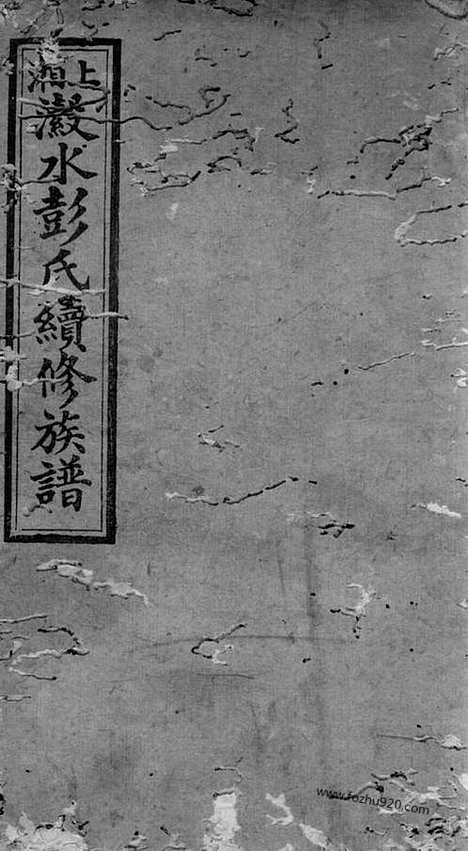 上湘
潊水彭氏續修族譜
www.fozhu920.com